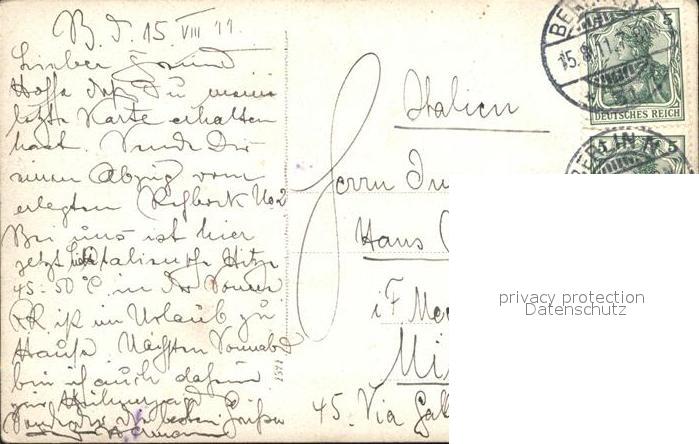 B. d. 15. VIII 11.
Lieber Freund
Hoffe daß Du meine
letzte Karte erhalten
hast. Sende Dir
einen Abzug vom
erlegten Rehbock No 2
Bei uns ist hier
jetzt Italienische Hitze
45-50°C in der Sonne
ist in Urlaub zu
Hause. Nächsten Sonnabd
bin ich auch daheim
zur
Sende Dir die besten Grüße
Italien
Herrn
Hans
iF
45. Via
1451
BERLIN
15.8.11
5
DEUTSCHES REICH
BERLIN N
5 5
privacy protection
Datenschutz